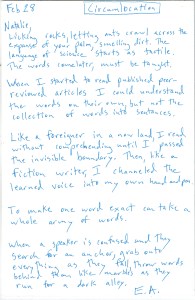 Feb 28
Circumlocution
Natalie,
Licking rocks, letting ants crawl across the
expanse of your palm, smelling dirt. The
language of science starts as tactile.
The words came later, must be taught.
When I started to read published peer-
reviewed articles I could understand
the words on their own, but not the
collection of words into sentences.
Like a foreigner in a new land I read
without comprehending until I passed
the invisible boundary. Then like a
fiction writer, I channeled the
learned voice into my own hand and pen
To make one word exact can take a
whole army of words.
When a speaker is confused and they
search for an anchor, grab onto
everything as they fall, throw words
behind them like marbles as they
run for a dark alley.
E.A.